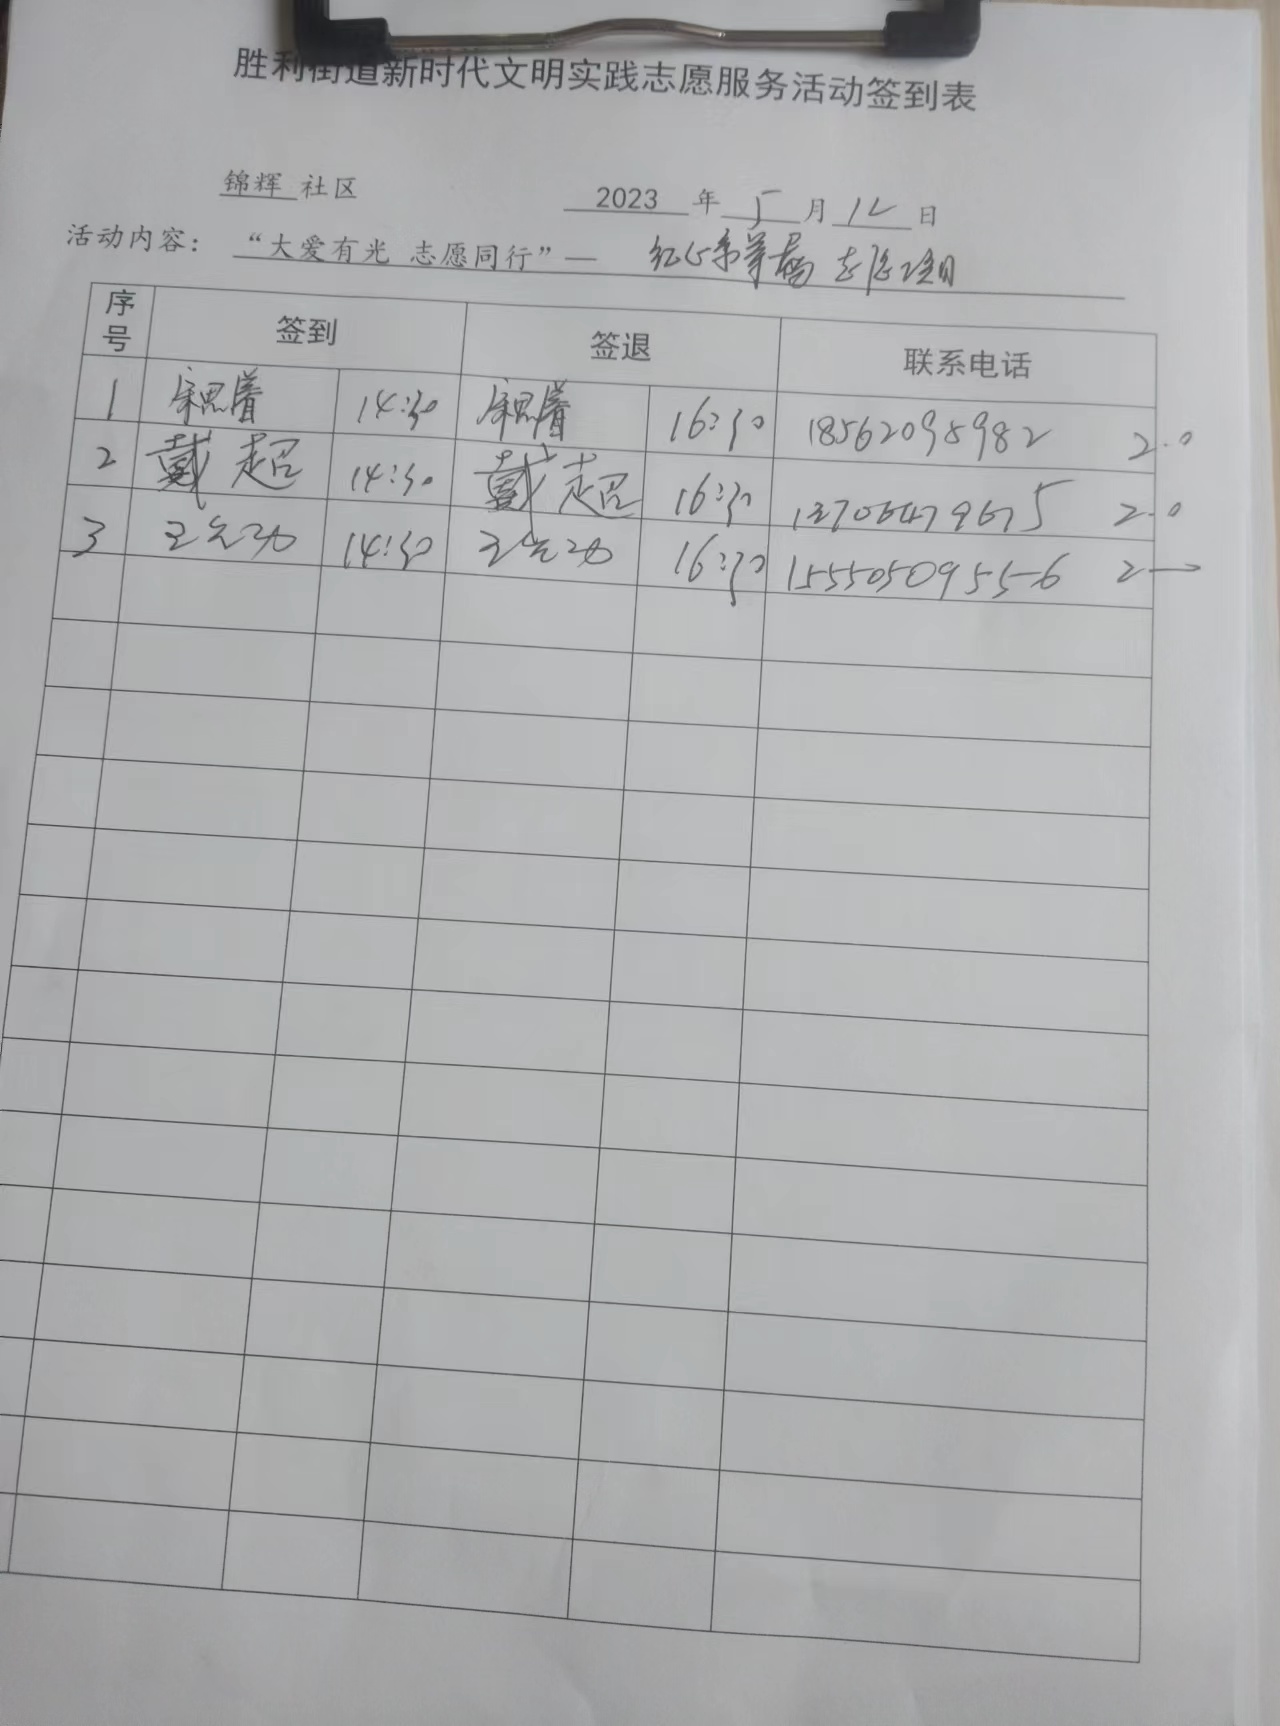 胜利街道新时代文明实践志愿服务活动签到表
锦辉 社区 2023 年 5 月 12 日
活动内容：“大爱有光 志愿同行”— 红心 志愿项目
序号 签到 签退 联系电话
1 宋思 14:30 宋思 16:30 18562098982 2.0
2 戴超 14:30 戴超 16:30 13706479675 2.0
3 王 14:30 王 16:30 15550509556 2